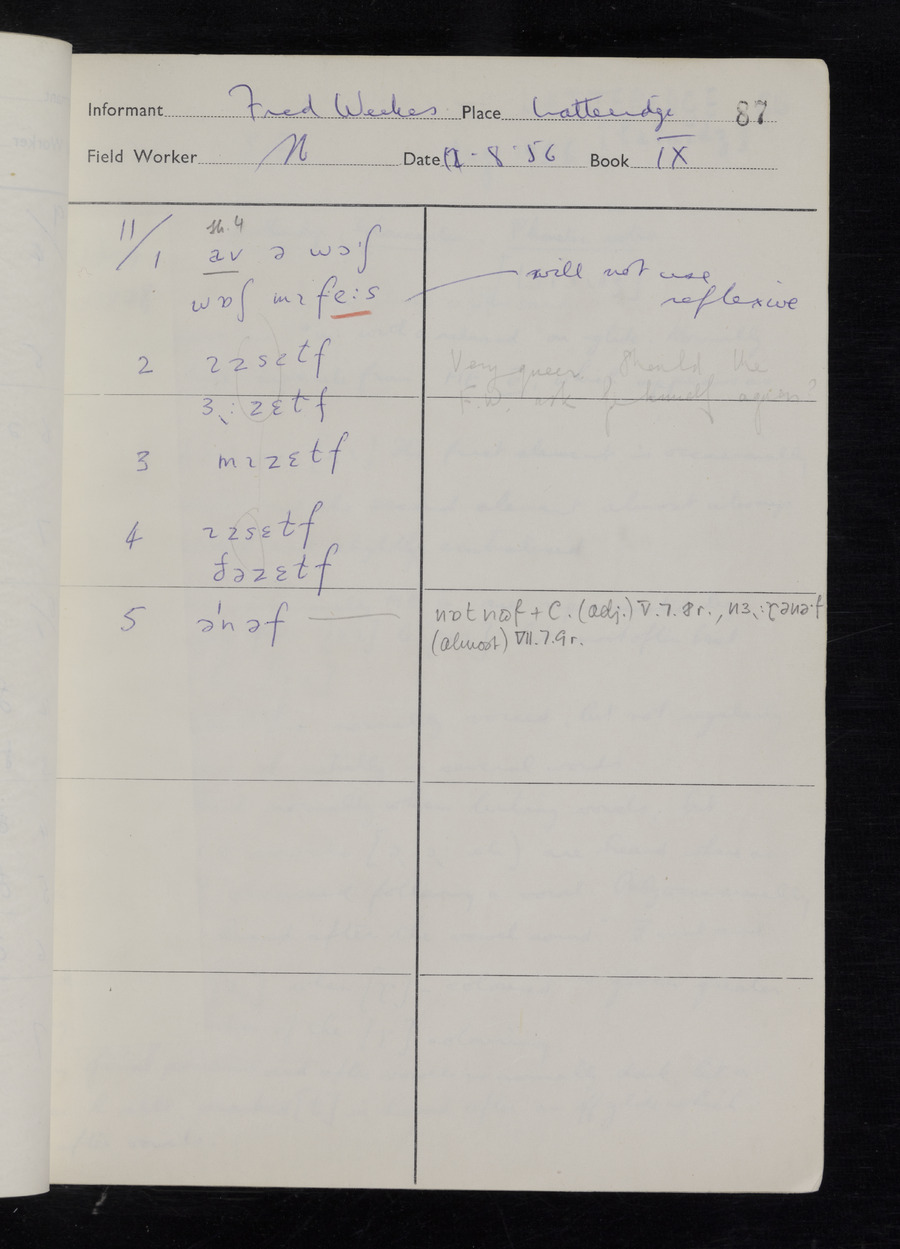 Informant Fred Weekes Place Latteridge 87
Field Worker N Date 12·8·56 Book IX
11/1 sh.4
av ə wɔˑʃ
wɒʃ mɪ feːs will not use
reflexive
2 ɪzsɛtf Very queer. Should the
F.W. ask for himself again?
ɜ˞ːzɛtf
3 mɪzɛtf
4 ɪzsɛtf
ðəzɛtf
5 əˈnəf nɒt nəf + C. (adj.) V.7.8r.,
(almost) VII.7.9r.